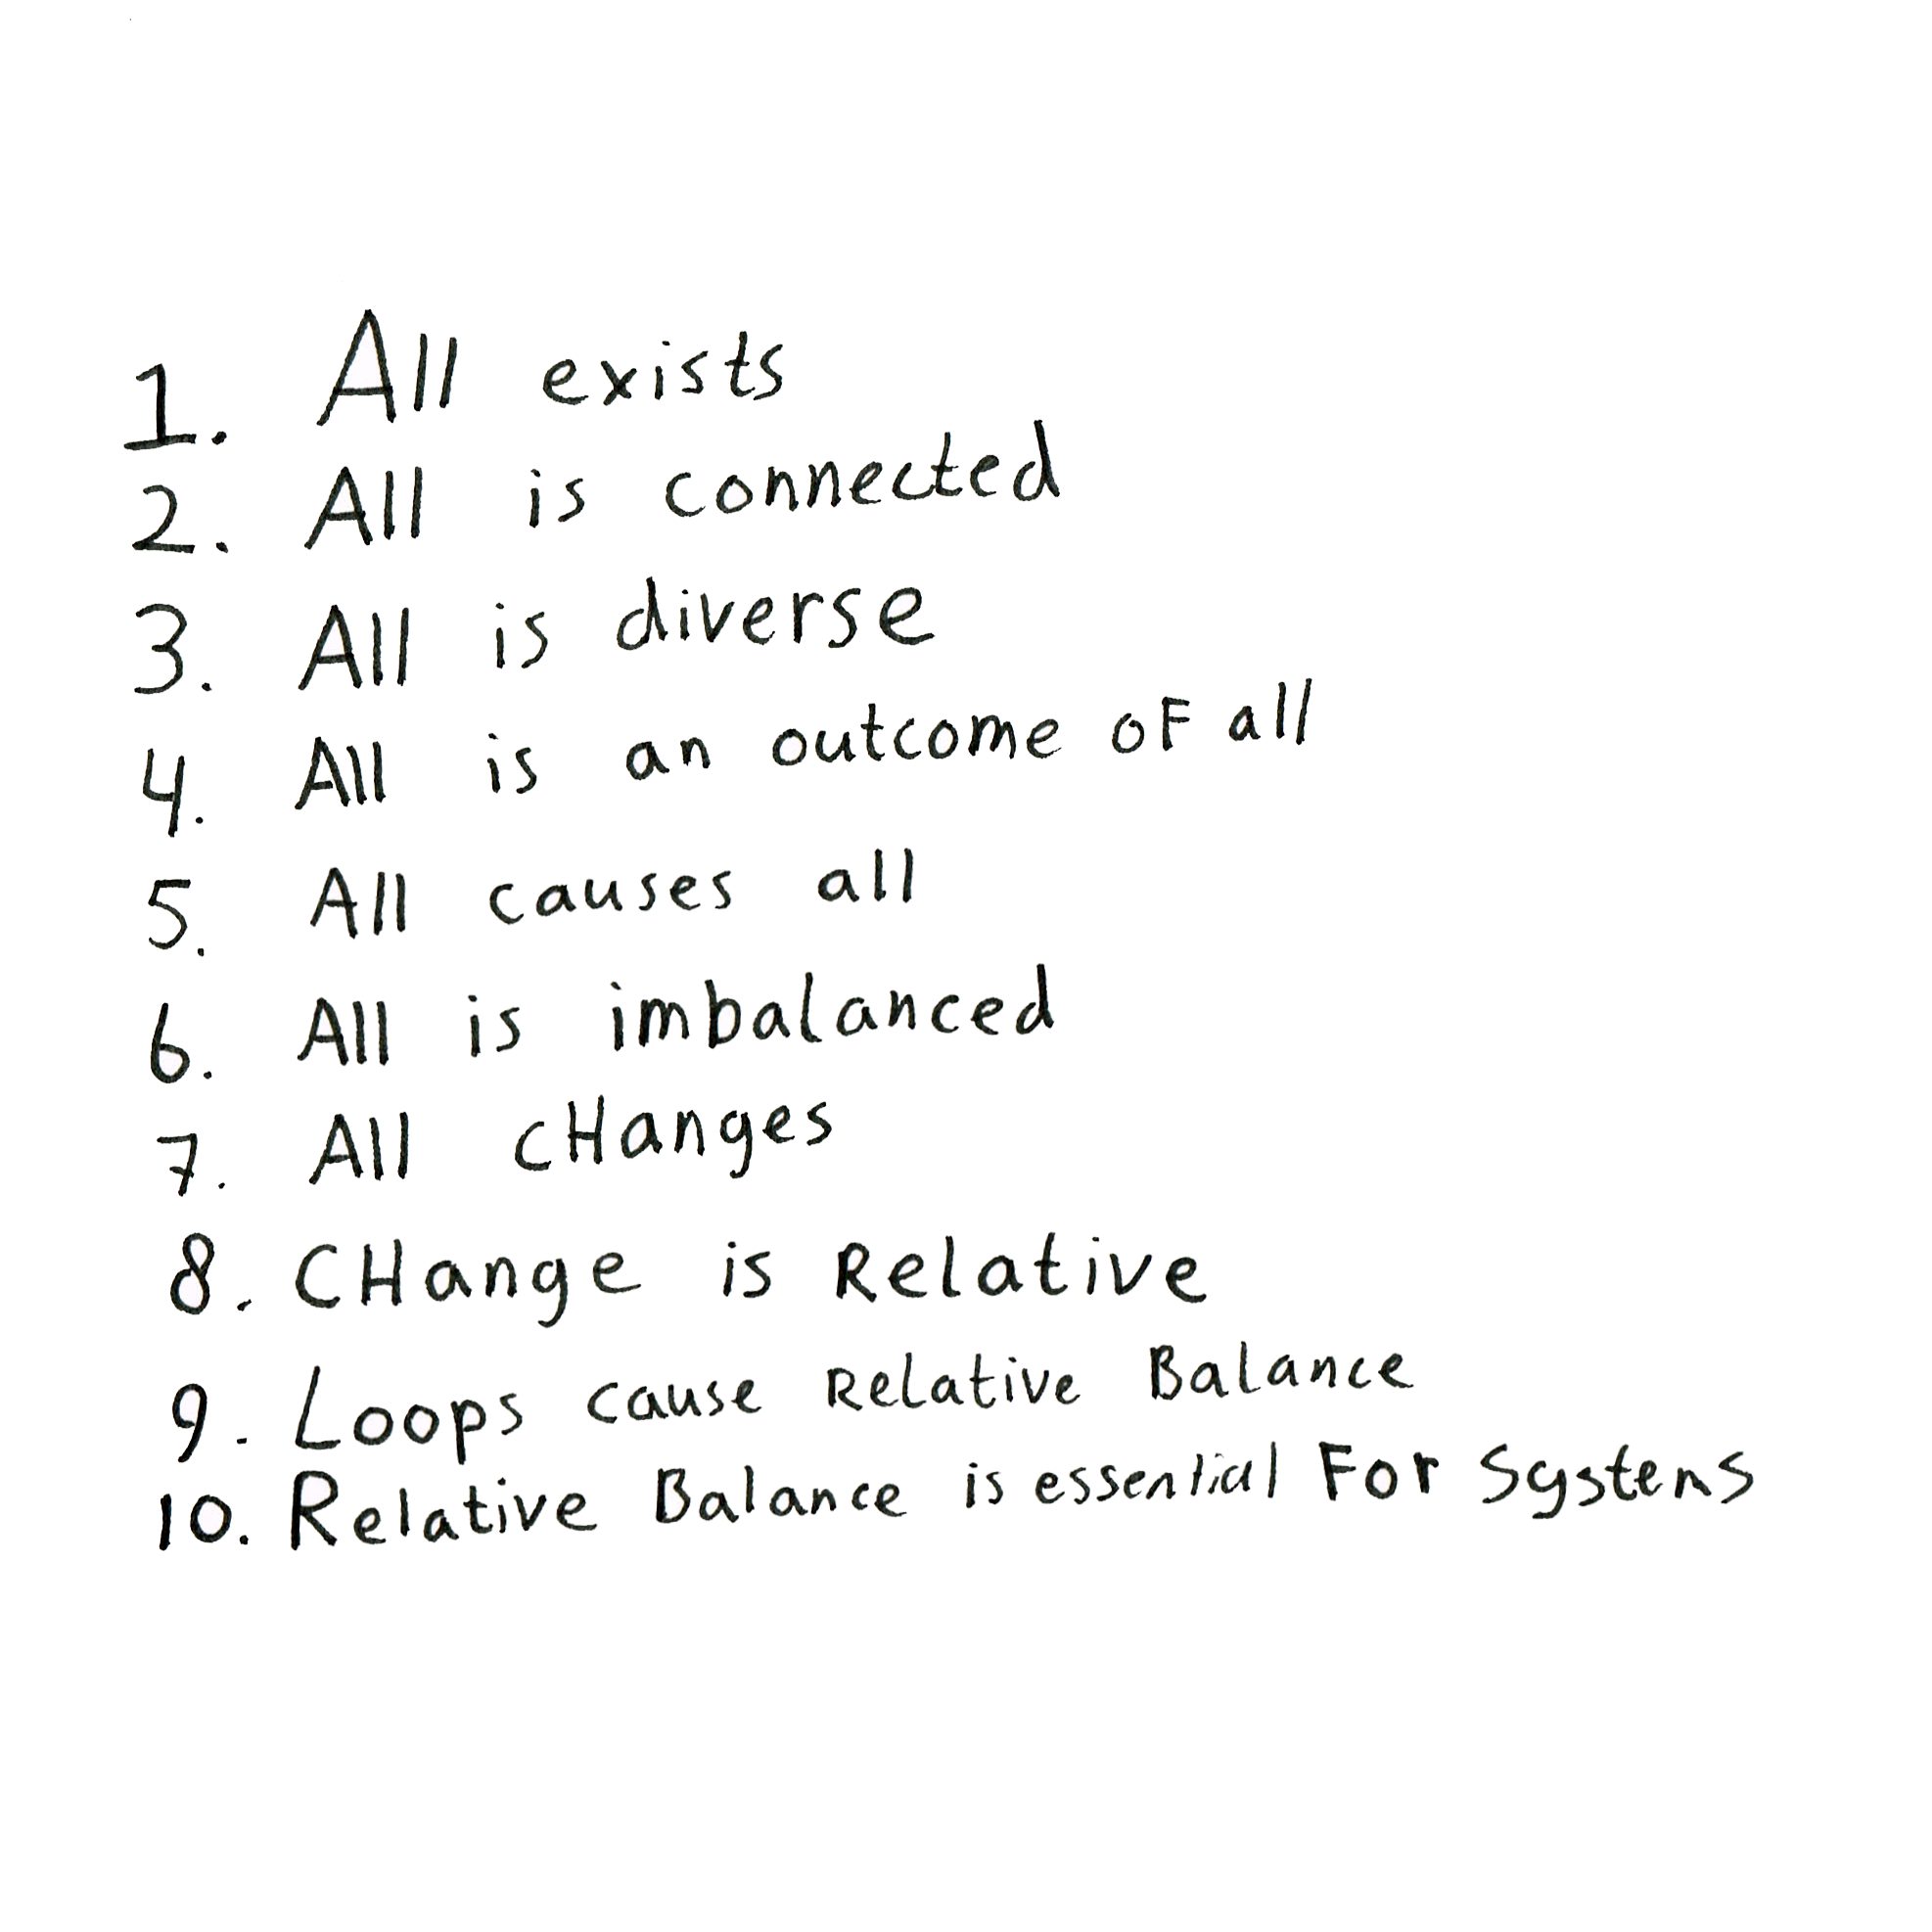 1. All exists
2. All is connected
3. All is diverse
4. All is an outcome of all
5. All causes all
6. All is imbalanced
7. All cHanges
8. CHange is Relative
9. Loops cause Relative Balance
10. Relative Balance is essential For Systems